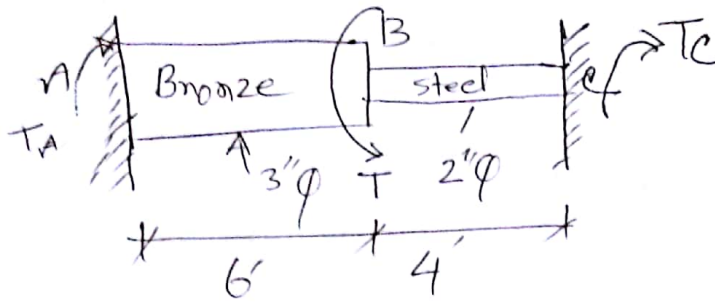 B
TC
A
Bronze
steel
C
TA
3"φ
T
2"φ
6'
4'